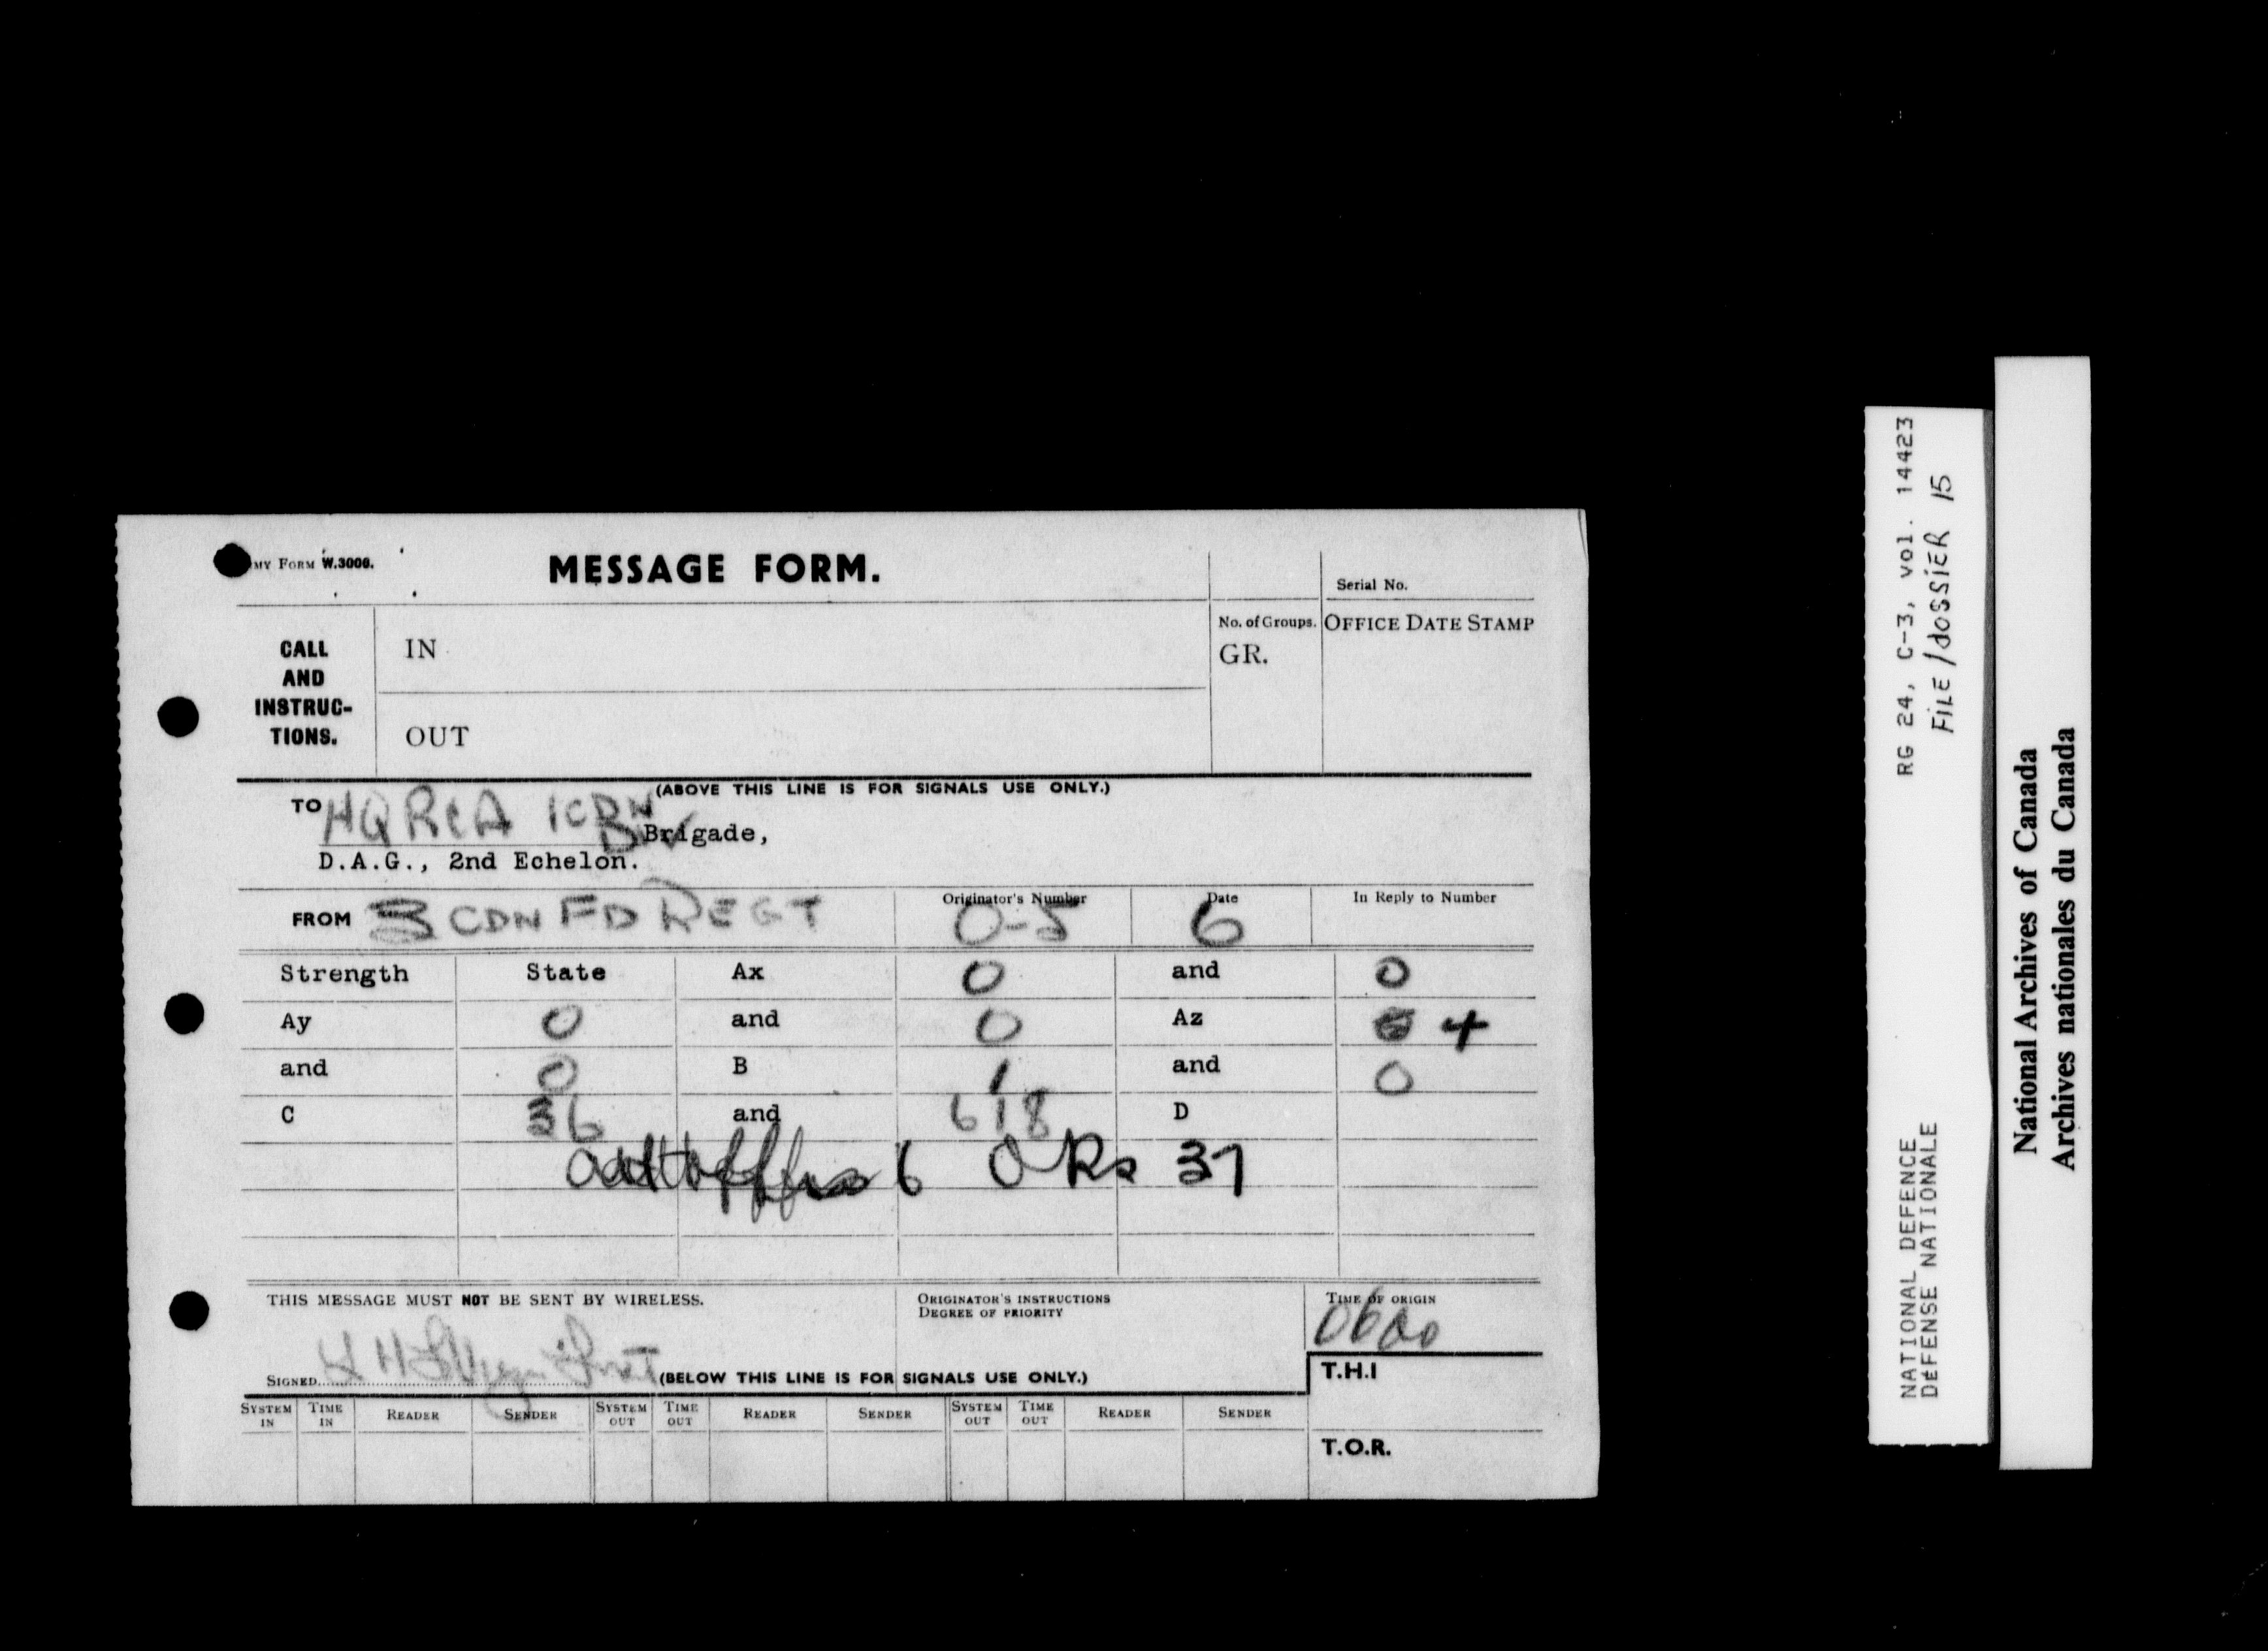 MY FORM W.3006.
MESSAGE FORM.
Serial No.
CALL AND INSTRUC-TIONS.
IN
No. of Groups.
GR.
OFFICE DATE STAMP
OUT
(ABOVE THIS LINE IS FOR SIGNALS USE ONLY.)
TO HQ RCA 1 CDN DIV Brigade,
D.A.G., 2nd Echelon.
FROM 3 CDN FD REGT
Originator's Number
0-5
Date
6
In Reply to Number
Strength State Ax 0 and 0
Ay 0 and 0 Az 4
and 0 B 1 and 0
C 36 and 618 D
6 ORs 37
THIS MESSAGE MUST NOT BE SENT BY WIRELESS.
ORIGINATOR'S INSTRUCTIONS
DEGREE OF PRIORITY
TIME OF ORIGIN
0600
SIGNED
(BELOW THIS LINE IS FOR SIGNALS USE ONLY.)
T.H.I
SYSTEM IN TIME IN READER SENDER SYSTEM OUT TIME OUT READER SENDER SYSTEM OUT TIME OUT READER SENDER
T.O.R.
RG 24, C-3, vol. 14423
FILE/dossier 15
NATIONAL DEFENCE
DÉFENSE NATIONALE
National Archives of Canada
Archives nationales du Canada